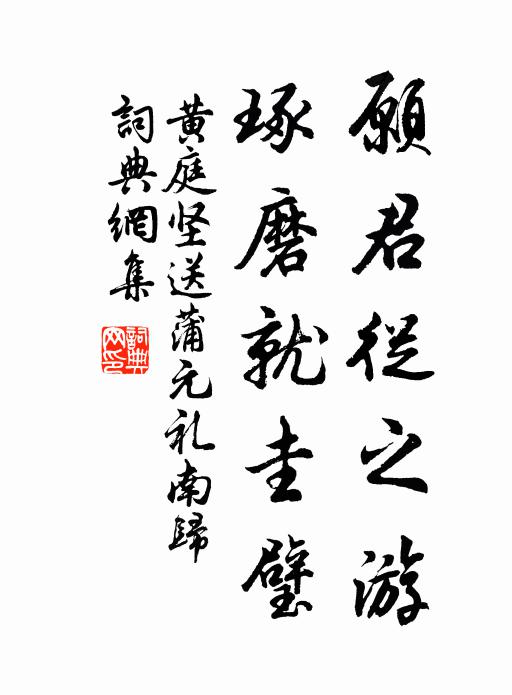 願君從之游
琢磨就圭璧
黃庭坚送蒲元礼南歸
詞典網集
詞典网印